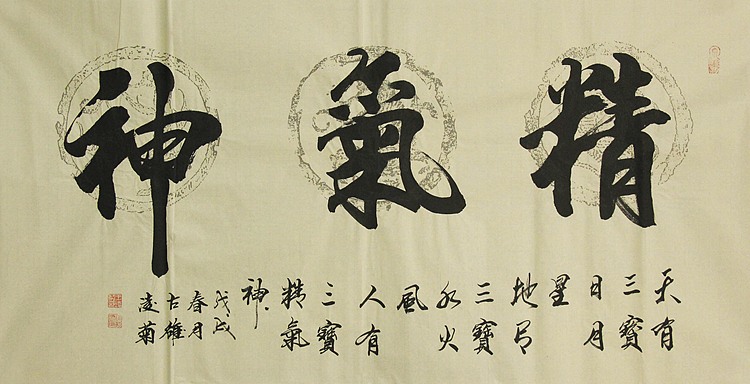 精氣神
天有
三寶
日月
星
地有
三寶
水火
風
人有
三寶
精氣
神
戊戌
春月
古雄
凌菊